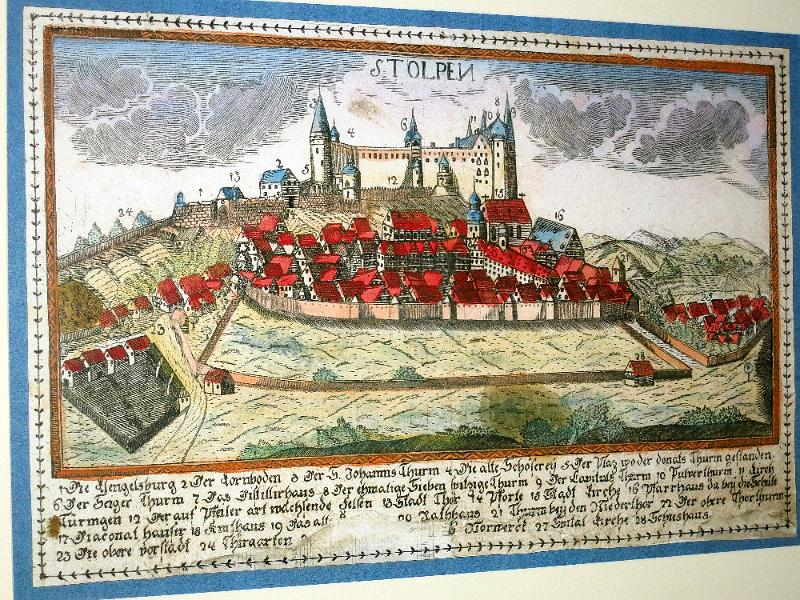 STOLPEN
1 Die Klengelsburg 2 Der Cornboden 3 Der S. Johannis Thurm 4 Die alte Schösserey 5 Der Plaz wo der donats Thurm gestanden
6 Der Seiger Thurm 7 Das Distilirhaus 8 Der ehmalige Sieben spitzige Thurm 9 Der Capitels Thurm 10 Pulverthurm 11 kirch
Türmgen 12 Der auf Pfeiler art wachsende Felsen 13 Stadt Thor 14 Pforte 15 Stadt Kirche 16 Pfarrhaus da bey die Schule
17 Diaconat hauser 18 19 Das alt 20 Rathhaus 21 Thurm bey den Niederthor 22 Der obere Thorthurm
23 Die obere vorstadt 24 Thirgarten 6 Vorwerck 27 Spital Kirche 28 Schieshaus